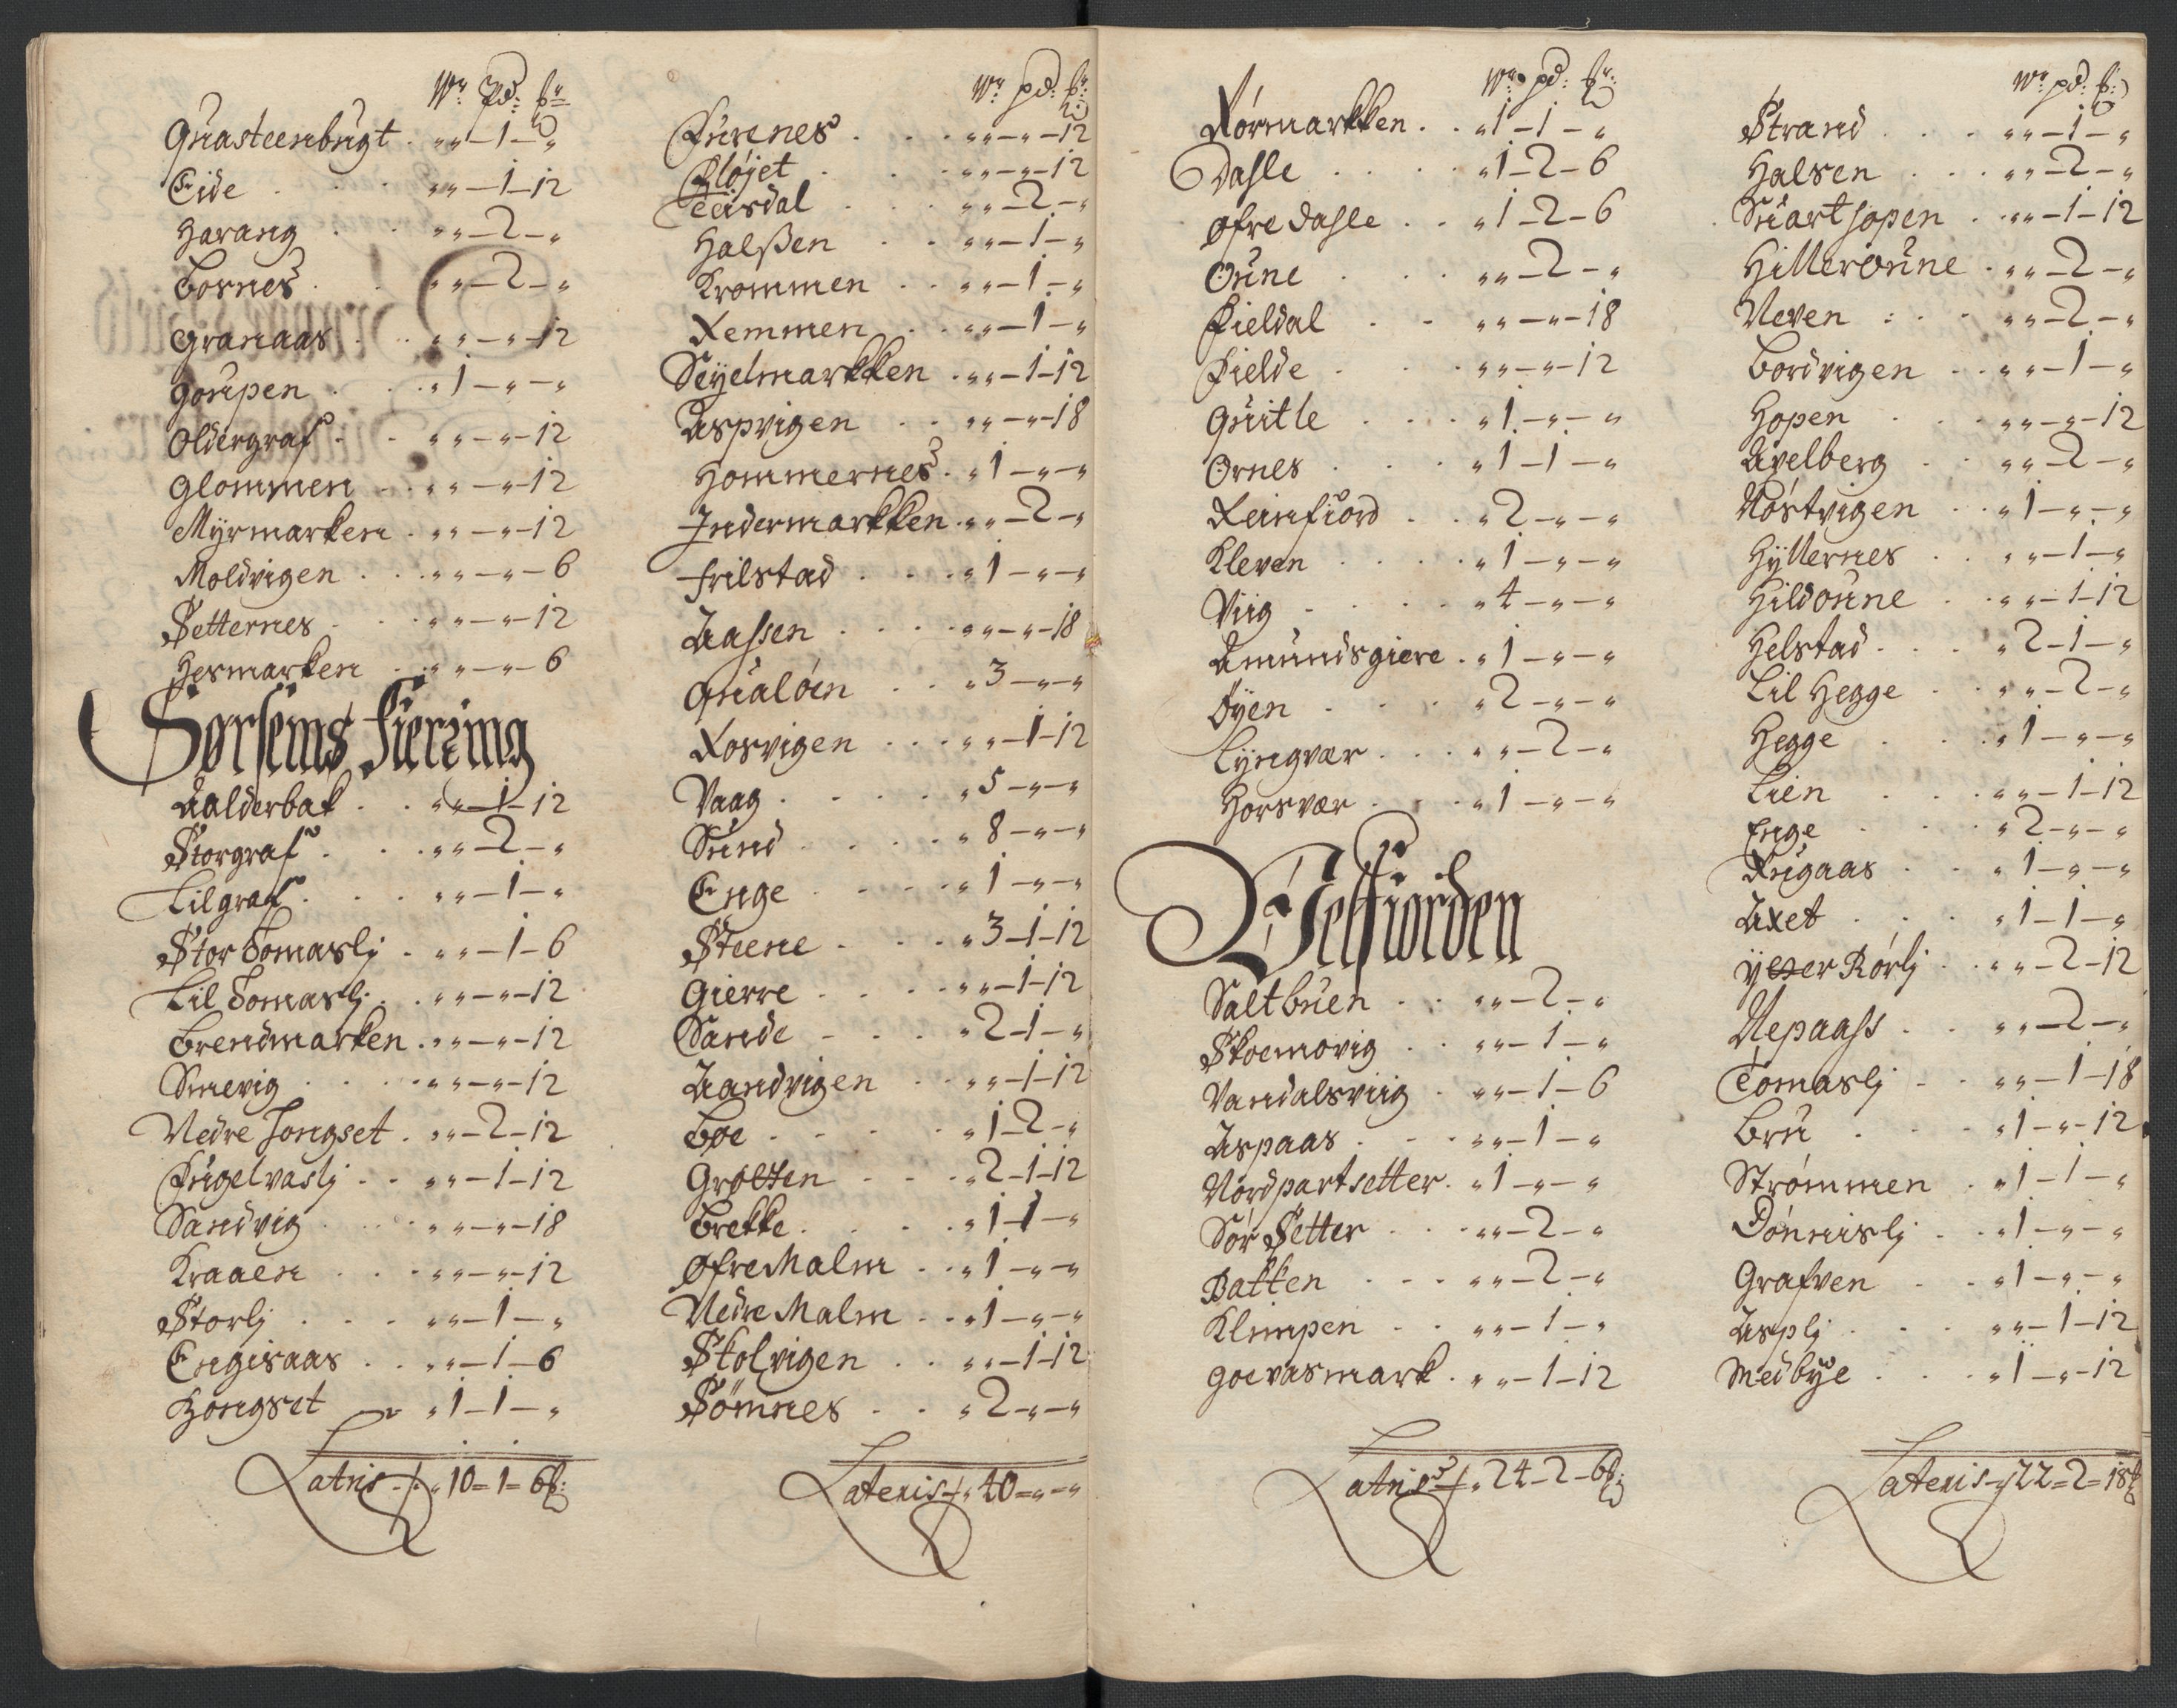 Wr: Pd: ℔r
Quasteenbugt . „ „ – 1 – „
Eide . . . „ „ – 1 – 12
Harang . . „ „ – 2 – „
Bornes . . „ „ – 2 – „
Granaas . . „ „ – „ – 12
Goupen . . „ 1 – „ – „
Oldergraf . . „ „ – „ – 12
Glommen . . „ „ – „ – 12
Myrmarken . „ „ – „ – 12
Moldvigen . . „ „ – „ – 6
Setternes . . „ „ – „ – 12
Hesmarken . „ „ – „ – 6
Sørsems Fierring
Aalderbak . . „ „ – 1 – 12
Storgraf . . „ „ – 2 – „
Lilgraf . . . „ „ – 1 – „
Stor Tomaslj . „ „ – 1 – 6
Lil Tomaslj . . „ „ – „ – 12
Brendmarken . „ „ – „ – 12
Smevig . . . „ „ – „ – 12
Nedre Hongset . „ „ – 2 – 12
Fugelvaslj . . „ „ – 1 – 12
Sandvig . . „ „ – „ – 18
Kraaen . . . „ „ – „ – 12
Storlj . . . „ „ – 1 – „
Engisaas . . „ „ – 1 – 6
Hongset „ 1 – 1 – „
Latris „ 10 = 1 = 6 ℔:
Wr: pd: ℔:
Furenes . . . „ „ – „ – 12
Fløjet . . . „ „ – „ – 12
Teisdal . . . „ „ – 2 – „
Halßen . . „ „ – 1 – „
Krommen . . „ „ – 1 – „
Remmen . . „ „ – 1 – „
Seyelmarkken . „ „ – 1 – 12
Aspvigen . . „ „ – „ – 18
Hommernes . „ 1 – „ – „
Indermarkken . „ „ – 2 – „
Frilstad . . . „ 1 – „ – „
Aassen . . . . „ „ – „ – 18
Qualøin . . „ 3 – „ – „
Rosvigen . . . „ „ – 1 – 12
Vaag . . . . „ 5 – „ – „
Sund . . . . „ 8 – „ – „
Enge . . . . „ 1 – „ – „
Steene . . . „ 3 – 1 – 12
Gierre . . . „ „ – 1 – 12
Sande . . . „ 2 – 1 – „
Aandvigen . . „ „ – 1 – 12
Bøe . . . . „ 1 – 2 – „
Grøtten . . . „ 2 – 1 – 12
Brekke . . . . „ 1 – 1 – „
Øfre Malm . . „ 1 – „ – „
Nedre Malm . . „ 1 – „ – „
Skolvigen . . „ „ – 1 – 12
Sömnes . . „ 2 – „ – „
Lateris „ 40 = „ = „
Wr: pd: ℔r:
Rørmarkken . . „ 1 – 1 – „
Dahle . . . . „ 1 – 2 – 6
Øfre Dahle . . „ 1 – 2 – 6
Oune . . . „ „ – 2 – „
Fieldal . . „ „ – „ – 18
Fielde . . . „ „ – „ – 12
Quitle . . . „ 1 – „ – „
Ornes . . . „ 1 – 1 – „
Reinfiord . . „ 2 – „ – „
Kleven . . . . „ 1 – „ – „
Viig . . . . „ 4 – „ – „
Amundsgiere . „ 1 – „ – „
Øyen . . . „ 2 – „ – „
Lyngvær . . . „ „ – 2 – „
Horsvær . . „ 1 – „ – „
Velfiorden
Saltbuen . . „ „ – 2 – „
Skoemovig . . „ „ – 1 – „
Vandalsviig . „ „ – 1 – 6
Aspaas . . . „ „ – 1 – „
Nordpartsetter . „ 1 – „ – „
Sør Setter . . „ „ – 2 – „
Bakken . . . „ „ – 2 – „
Klimpen . . „ „ – 1 – „
Goevasmark . „ „ – 1 – 12
Latris „ 24 – 2 – 6 ℔:
Wr: pd: ℔:
Strand . . . „ „ – 1 – „
Halsen . . . „ „ – 2 – „
Suarthopen . „ „ – 1 – 12
Hilleroune . „ „ – 2 – „
Neven . . . „ „ – 2 – „
Bordvigen . . „ „ – 1 – „
Hopen . . . „ „ – „ – 12
Avelberg . . „ „ – 2 – „
Nøstvigen . . „ 1 – „ – „
Hyllernes . . „ „ – 1 – „
Hildoune . . „ „ – 1 – 12
Helstad . . . „ 2 – 1 – „
Lil Hegge . . „ „ – 2 – „
Hegge . . . „ 1 – „ – „
Lien . . . „ „ – 1 – 12
Enge . . . „ 2 – „ – „
Rugaas . . „ 1 – „ – „
Axet . . . „ 1 – 1 – „
Ytter Rørlj . . „ „ – 2 – 12
Nepaass . . „ „ – 2 – „
Tomaslj . . „ „ – 1 – 18
Bru . . . „ 1 – „ – 12
Strømmen . „ 1 – 1 – „
Dønnislj . . „ 1 – „ – „
Grafven . . „ 1 – „ – „
Asplj . . . „ „ – 1 – 12
Medbye . . . „ 1 – „ – 12
Lateris „ 22 = 2 = 18 ℔